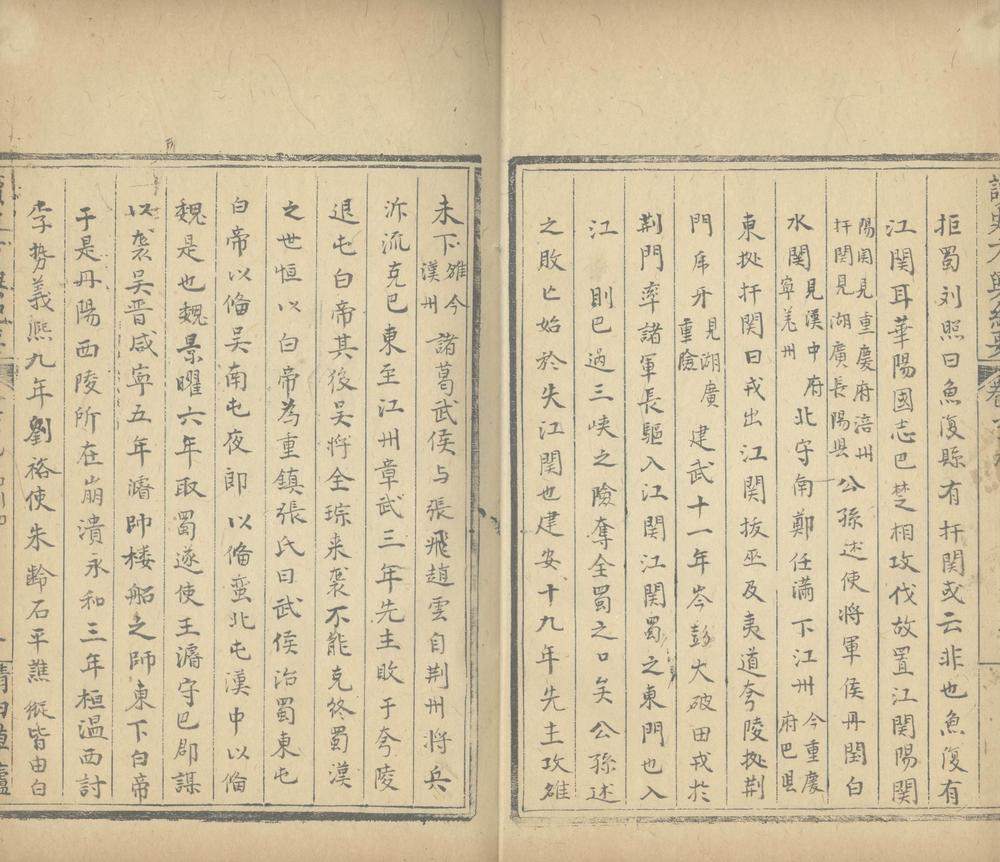 拒蜀刘照曰魚復縣有扞関或云非也魚復有
江関耳華陽國志巴楚相攻伐故置江関陽関
陽関見重慶府涪州
扞関見湖廣長陽県
公孫述使将軍侯丹閏白
水関
見漢中府
寧羗州
北守南鄭任満下江州
今重慶
府巴県
東㩀扞関田戎出江関拔巫及夷道夸陵㩀荆
門虎牙
見湖廣
重險
建武十一年岑彭大破田戎於
荆門率諸軍長驅入江関江関蜀之東門也入
江関則巴過三峽之險奪全蜀之口矣公孫述
之敗亡始於失江関也建安十九年先主攻雒
未下
雒今
漢州
諸葛武侯与張飛趙雲自荆州将兵
泝流克巴東至江州章武三年先主敗于夸陵
退屯白帝其後吴将全琮来襲不能克終蜀漢
之世恒以白帝為重鎮張氏曰武侯治蜀東屯
白帝以俻吴南屯夜郎以俻蛮北屯漢中以俻
魏是也魏景曜六年取蜀遂使王濬守巴郡謀
以袭吴晋咸寕五年濬帥楼船之師東下白帝
于是丹陽西陵所在崩潰永和三年桓温西討
李势義熙九年劉裕使朱齢石平譙縦皆由白